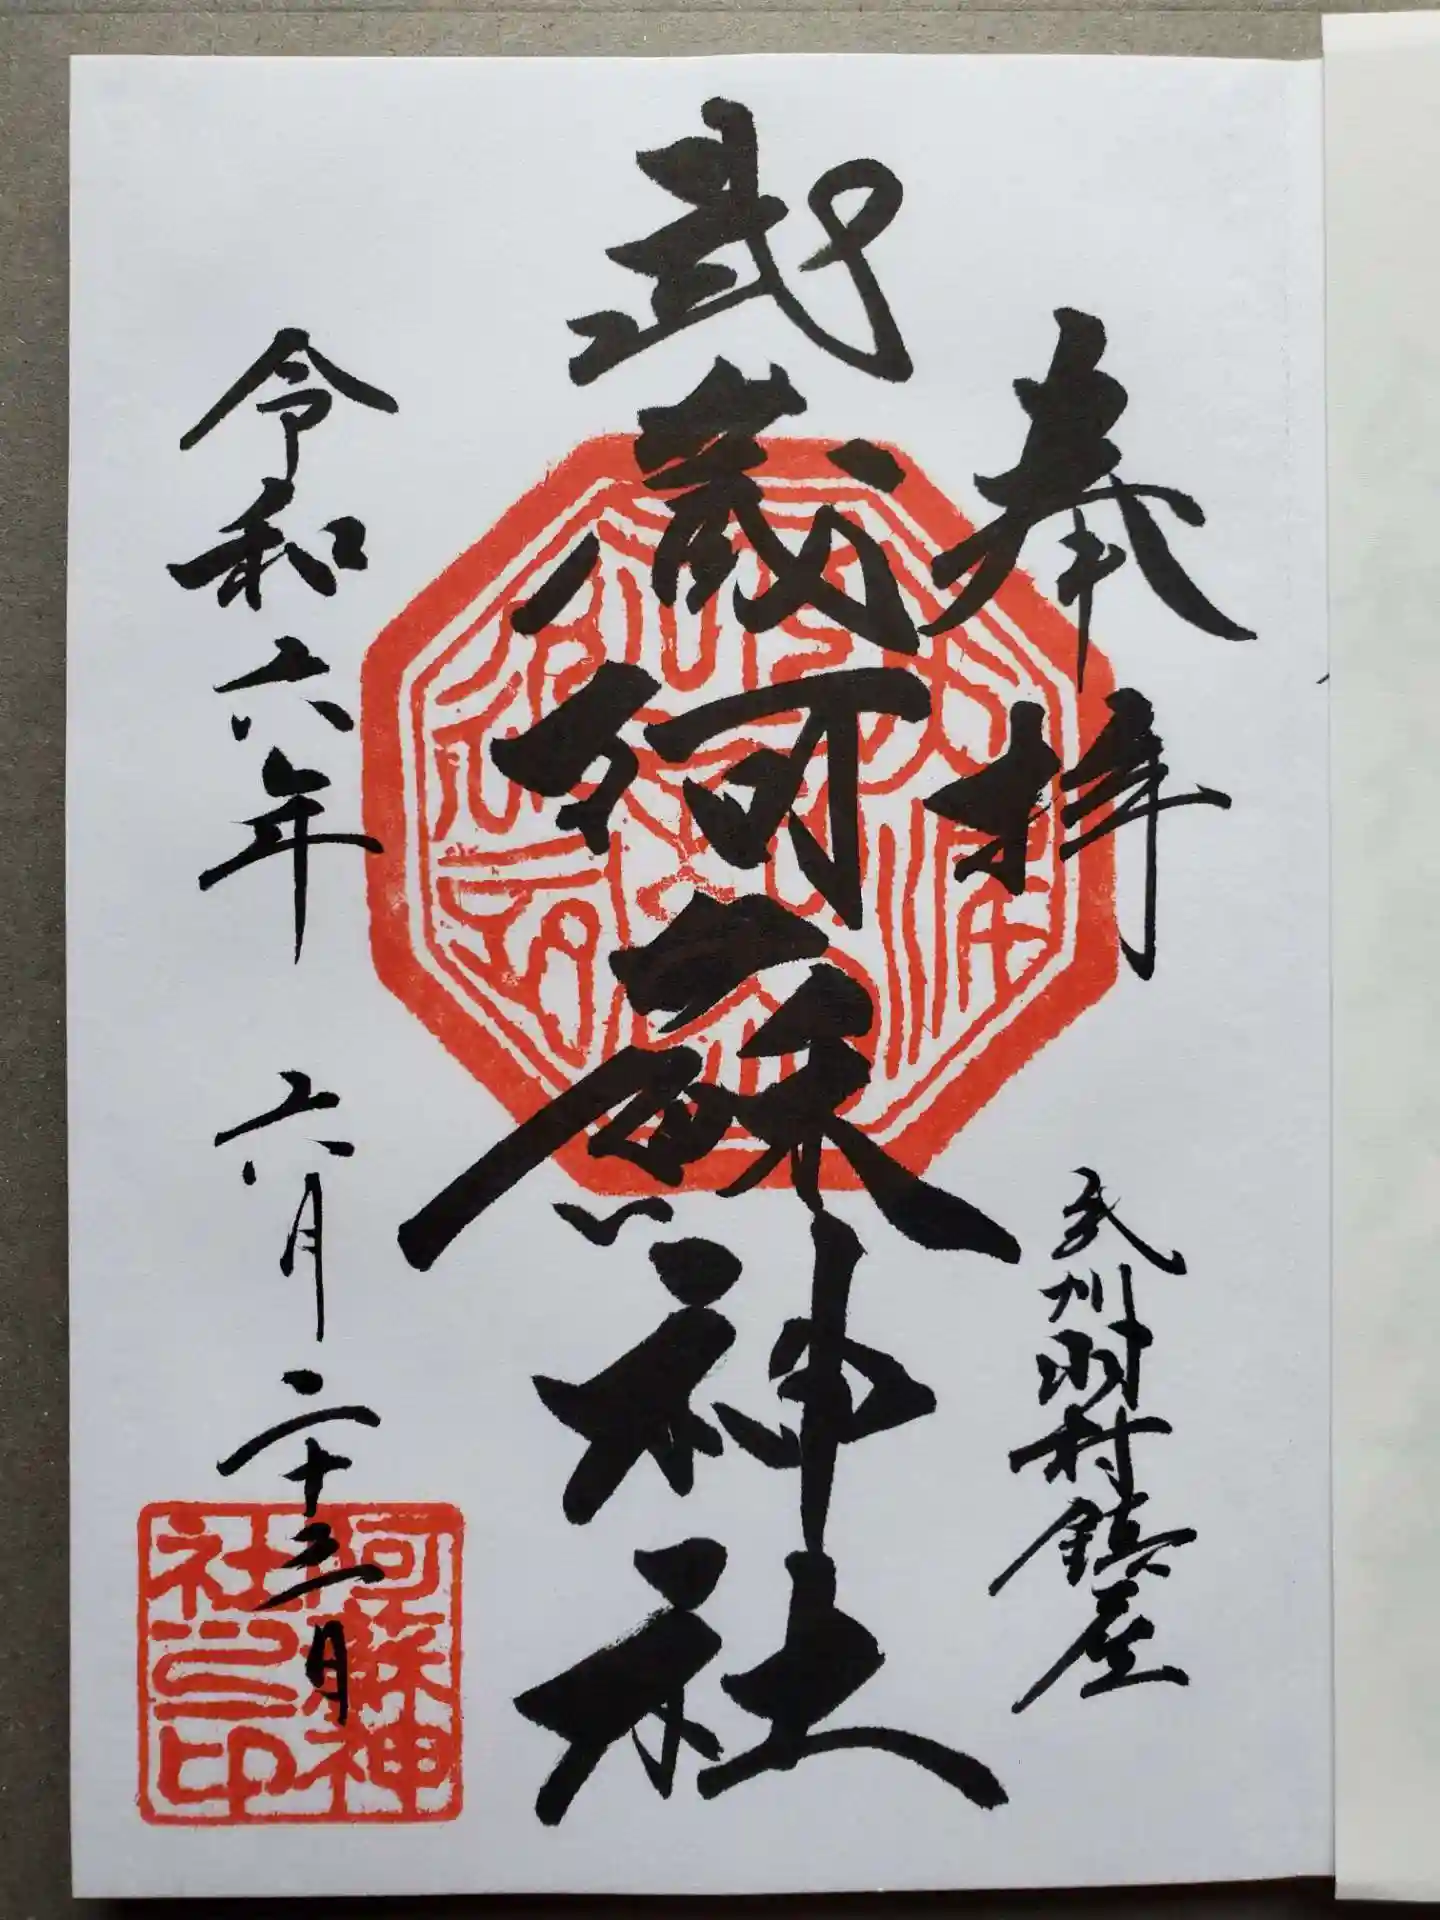 奉拝
武州羽村鎮座
武蔵阿蘇神社
令和六年 六月二十三日
阿蘇神
社之印